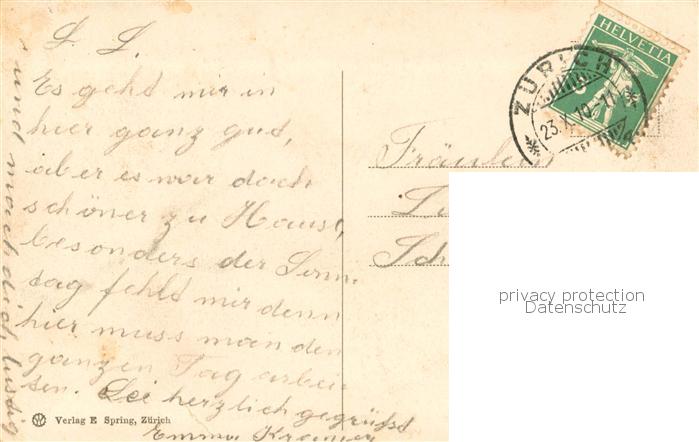 L. L.
Es geht mir in
hier ganz gut,
aber es war doch
schöner zu Hause,
besonders der Sonn-
tag fehlt mir denn
hier muss man den
ganzen Tag arbei-
ten. Sei herzlich gegrüsst
Emma
und mach dich lustig
Verlag E Spring, Zürich
HELVETIA
ZÜRICH
23.X.10-11
Fräulein
privacy protection
Datenschutz